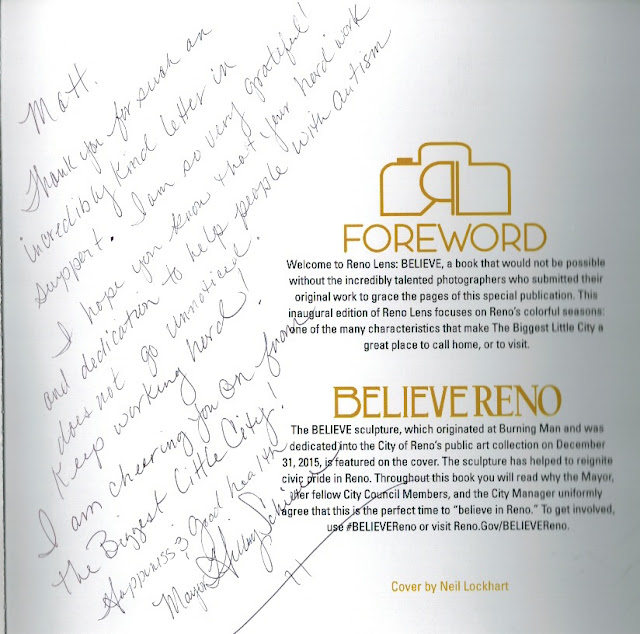 Matt.
Thank you for such an
incredibly kind letter in
support. I am so very grateful!
I hope you know that your hard work
and dedication to help people with autism
does not go unnoticed.
Keep working hard!
I am cheering you on from
the Biggest Little City!
Happiness & Good health
Mayor Hillary Schieve
FOREWORD
Welcome to Reno Lens: BELIEVE, a book that would not be possible
without the incredibly talented photographers who submitted their
original work to grace the pages of this special publication. This
inaugural edition of Reno Lens focuses on Reno's colorful seasons:
one of the many characteristics that make The Biggest Little City a
great place to call home, or to visit.
BELIEVE RENO
The BELIEVE sculpture, which originated at Burning Man and was
dedicated into the City of Reno's public art collection on December
31, 2015, is featured on the cover. The sculpture has helped to reignite
civic pride in Reno. Throughout this book you will read why the Mayor,
her fellow City Council Members, and the City Manager uniformly
agree that this is the perfect time to "believe in Reno." To get involved,
use #BELIEVEReno or visit Reno.Gov/BELIEVEReno.
Cover by Neil Lockhart